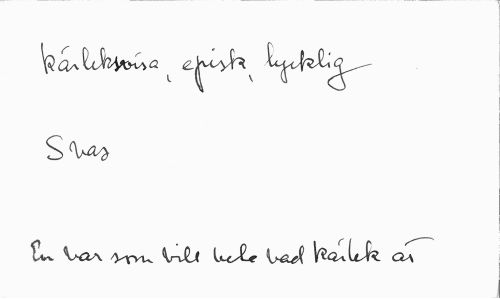 Kärleksvisa, episk, lycklig
Svas
En var som vill veta vad kärlek är